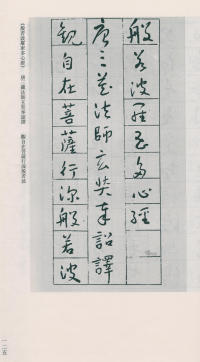 般若波羅蜜多心經
唐三藏法師玄奘奉詔譯
觀自在菩薩行深般若波
《般若波羅蜜多心經》 唐三藏法師玄奘奉詔譯 觀自在菩薩行深般若波
一二五